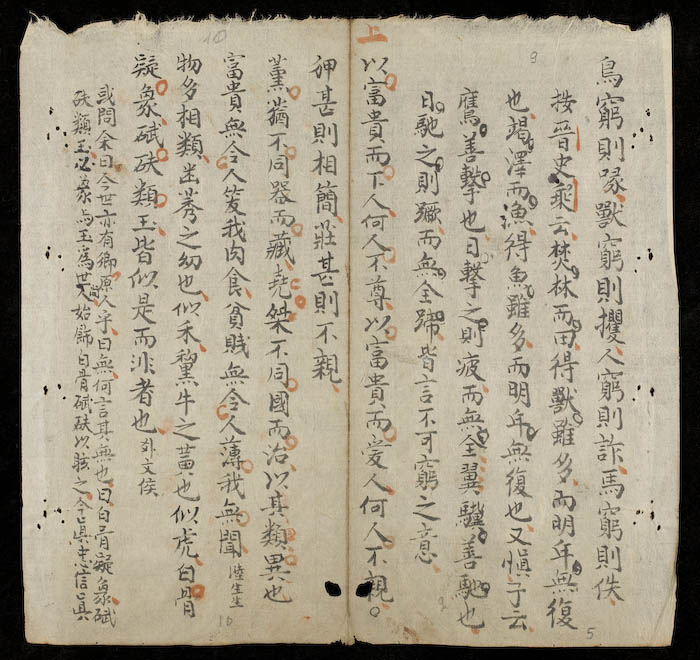 上
鳥窮則啄獸窮則攫人窮則詐馬窮則佚
按晉史乘云焚林而田得獸雖多而明年無復
也竭澤而漁得魚雖多而明年無復也又慎子云
鷹善擊也日擊之則疲而無全翼驥善馳也
日馳之則蹶而無全蹄皆言不可窮之意
以富貴而下人何人不尊以富貴而愛人何人不親
狎甚則相簡莊甚則不親
薰蕕不同器而藏堯桀不同國而治以其類異也
富貴無令人笑我肉食貧賤無令人薄我無聞 陸生生
物多相類出莠之幼也似禾黧牛之黃也似虎白骨
疑象碔砆類玉皆似是而非者也 外文侯
或問余曰今世亦有鄉原人乎曰無何言其無也曰白骨疑象碔
砆類玉必象与玉為世人尚始飾白骨碔砆以
之今真忠信真
10
9
10
2
5